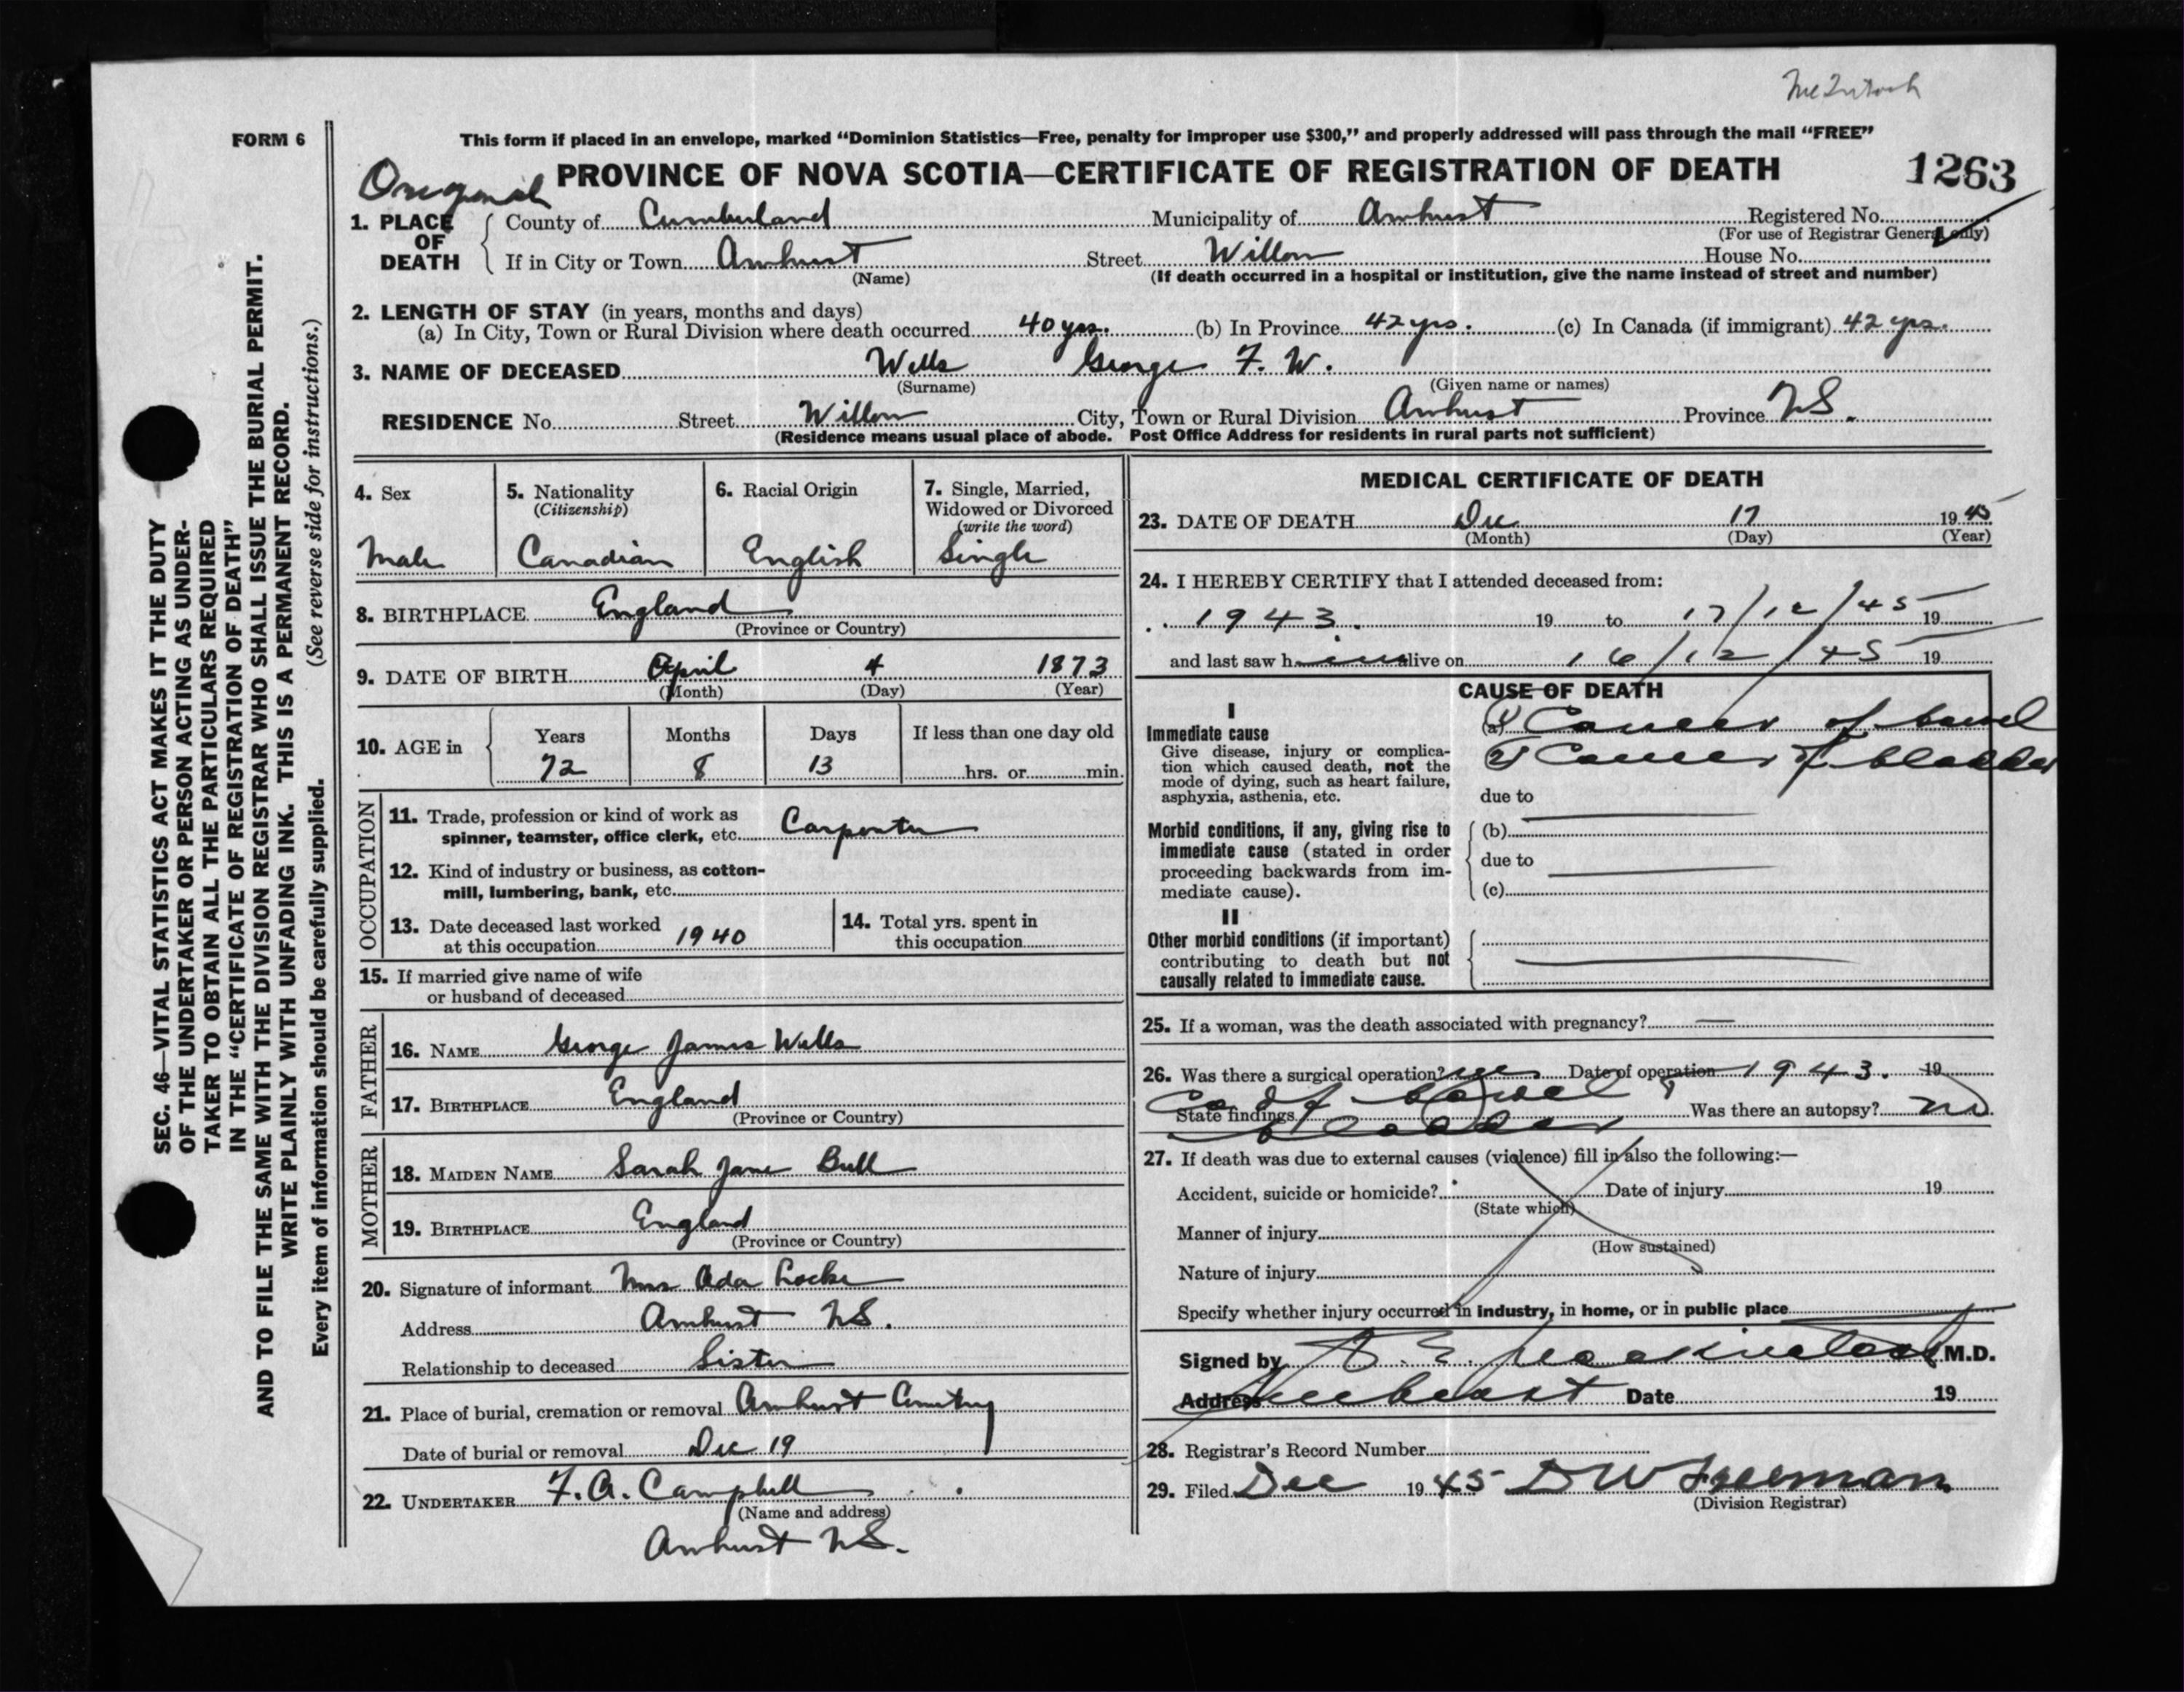 McIntosh
FORM 6
This form if placed in an envelope, marked "Dominion Statistics—Free, penalty for improper use $300," and properly addressed will pass through the mail "FREE"
Original PROVINCE OF NOVA SCOTIA—CERTIFICATE OF REGISTRATION OF DEATH 1263
1. PLACE OF DEATH County of Cumberland Municipality of Amherst Registered No.
(For use of Registrar General only)
If in City or Town Amherst Street Willow House No.
(Name) (If death occurred in a hospital or institution, give the name instead of street and number)
2. LENGTH OF STAY (in years, months and days)
(a) In City, Town or Rural Division where death occurred 40 yrs. (b) In Province 42 yrs. (c) In Canada (if immigrant) 42 yrs.
3. NAME OF DECEASED Wells George F. W.
(Surname) (Given name or names)
RESIDENCE No. Street Willow City, Town or Rural Division Amherst Province NS.
(Residence means usual place of abode. Post Office Address for residents in rural parts not sufficient)
4. Sex
Male
5. Nationality
(Citizenship)
Canadian
6. Racial Origin
English
7. Single, Married,
Widowed or Divorced
(write the word)
Single
8. BIRTHPLACE England
(Province or Country)
9. DATE OF BIRTH April 4 1873
(Month) (Day) (Year)
10. AGE in Years Months Days If less than one day old
72 8 13 hrs. or min.
OCCUPATION
11. Trade, profession or kind of work as
spinner, teamster, office clerk, etc. Carpenter
12. Kind of industry or business, as cotton-
mill, lumbering, bank, etc.
13. Date deceased last worked
at this occupation 1940
14. Total yrs. spent in
this occupation
15. If married give name of wife
or husband of deceased
FATHER
16. NAME George James Wells
17. BIRTHPLACE England
(Province or Country)
MOTHER
18. MAIDEN NAME Sarah Jane Bull
19. BIRTHPLACE England
(Province or Country)
20. Signature of informant Mrs Ada Locke
Address Amherst NS.
Relationship to deceased Sister
21. Place of burial, cremation or removal Amherst Cemetery
Date of burial or removal Dec 19
22. UNDERTAKER F. A. Campbell
(Name and address)
Amherst NS.
MEDICAL CERTIFICATE OF DEATH
23. DATE OF DEATH Dec 17 1945
(Month) (Day) (Year)
24. I HEREBY CERTIFY that I attended deceased from:
1943. 19 to 17/12/45 19
and last saw h im alive on 16/12/45 19
CAUSE OF DEATH
I
Immediate cause
Give disease, injury or complica-
tion which caused death, not the
mode of dying, such as heart failure,
asphyxia, asthenia, etc.
(a) 1) Cancer of bowel
2) Cancer of bladder
due to
Morbid conditions, if any, giving rise to
immediate cause (stated in order
proceeding backwards from im-
mediate cause).
(b)
due to
(c)
II
Other morbid conditions (if important)
contributing to death but not
causally related to immediate cause.
25. If a woman, was the death associated with pregnancy? —
26. Was there a surgical operation? yes Date of operation 1943. 19
State findings Ca of bowel & bladder Was there an autopsy? no
27. If death was due to external causes (violence) fill in also the following:—
Accident, suicide or homicide? Date of injury 19
(State which)
Manner of injury
(How sustained)
Nature of injury
Specify whether injury occurred in industry, in home, or in public place
Signed by M.D.
Address Amherst Date 19
28. Registrar's Record Number
29. Filed Dec 1945 D W Freeman
(Division Registrar)
SEC. 46—VITAL STATISTICS ACT MAKES IT THE DUTY
OF THE UNDERTAKER OR PERSON ACTING AS UNDER-
TAKER TO OBTAIN ALL THE PARTICULARS REQUIRED
IN THE "CERTIFICATE OF REGISTRATION OF DEATH"
AND TO FILE THE SAME WITH THE DIVISION REGISTRAR WHO SHALL ISSUE THE BURIAL PERMIT.
WRITE PLAINLY WITH UNFADING INK. THIS IS A PERMANENT RECORD.
Every item of information should be carefully supplied. (See reverse side for instructions.)